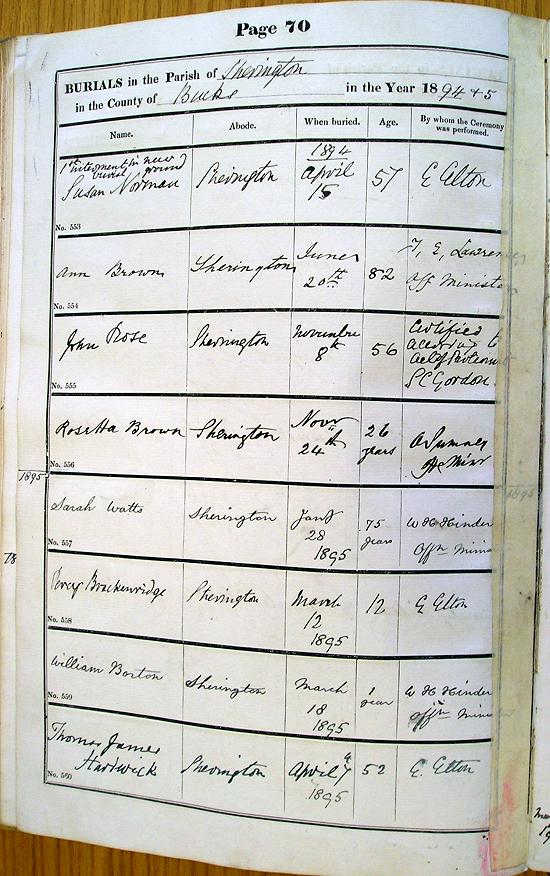 Page 70
BURIALS in the Parish of Sherington
in the County of Bucks in the Year 1894 + 5
Name. Abode. When buried. Age. By whom the Ceremony was performed.
1st interment in new
burial ground
Susan Norman Sherington 1894 April 15 57 E Elton
No. 553
Ann Brown Sherington June 20th 82 T. E. Lawrence Off Minister
No. 554
Rose Sherington November 8th 56 Certified according to act of Parliament Gordon
No. 555
Rosetta Brown Sherington Novr 24th 26 years A Sumner Off Minr
No. 556
1895
Sarah Watts Sherington Jany 28 1895 75 years W H Hinder Offn Minis
No. 557
78
Percy Brackenridge Sherington March 12 1895 12 E Elton
No. 558
William Borton Sherington March 18 1895 1 year W H Hinder offn Minis
No. 559
Thomas James
Hardwick Sherington April 7 1895 52 E. Elton
No. 560